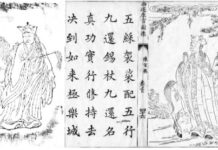 五綵袈裟配五行
九還錫杖九還名
真功實行修持去
决到如來極樂城